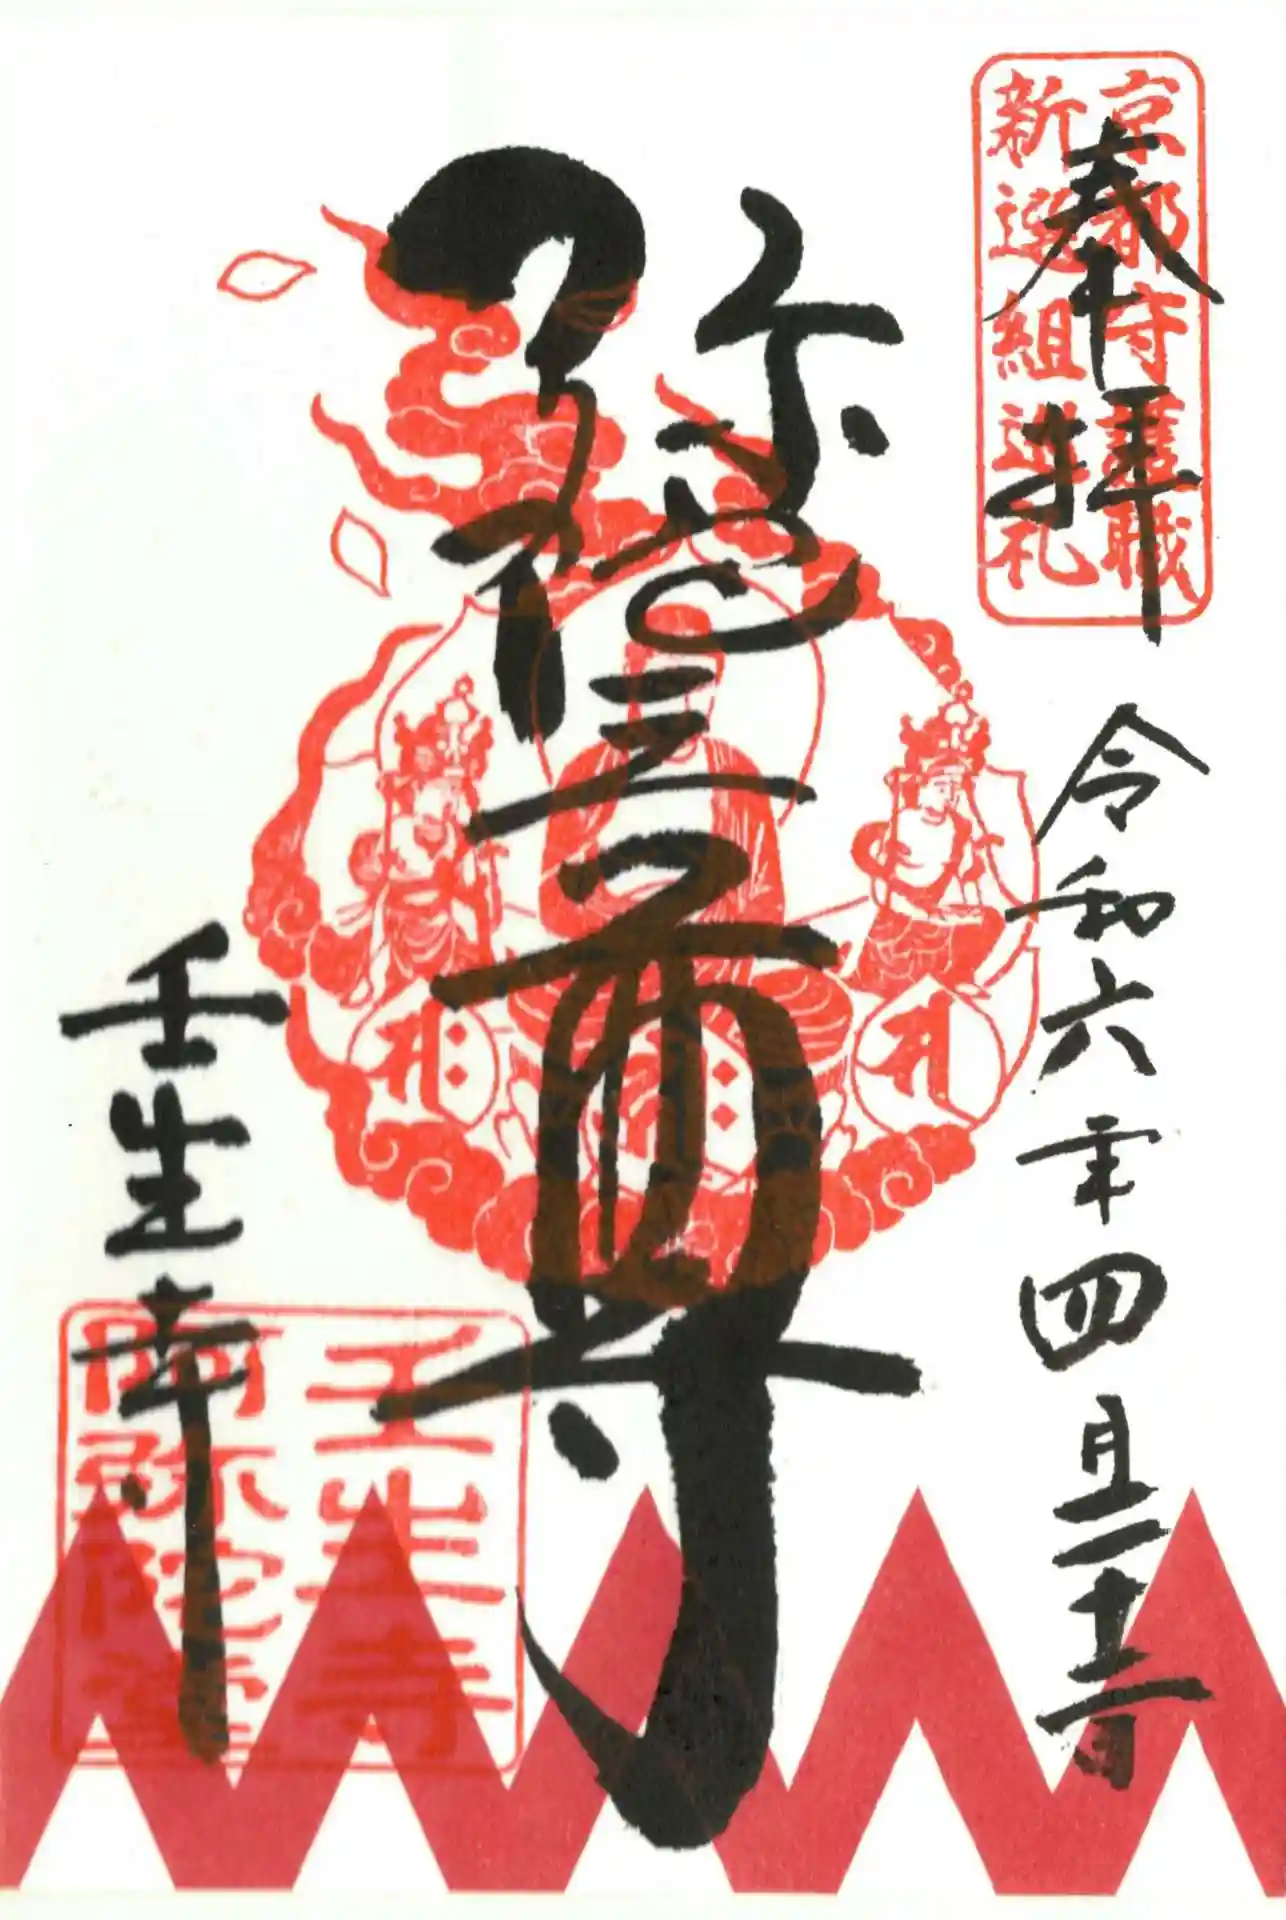 京都守護職
新選組巡礼
奉拝
令和六年四月二十二日
弥陀三尊
壬生寺
壬生寺
阿弥陀堂